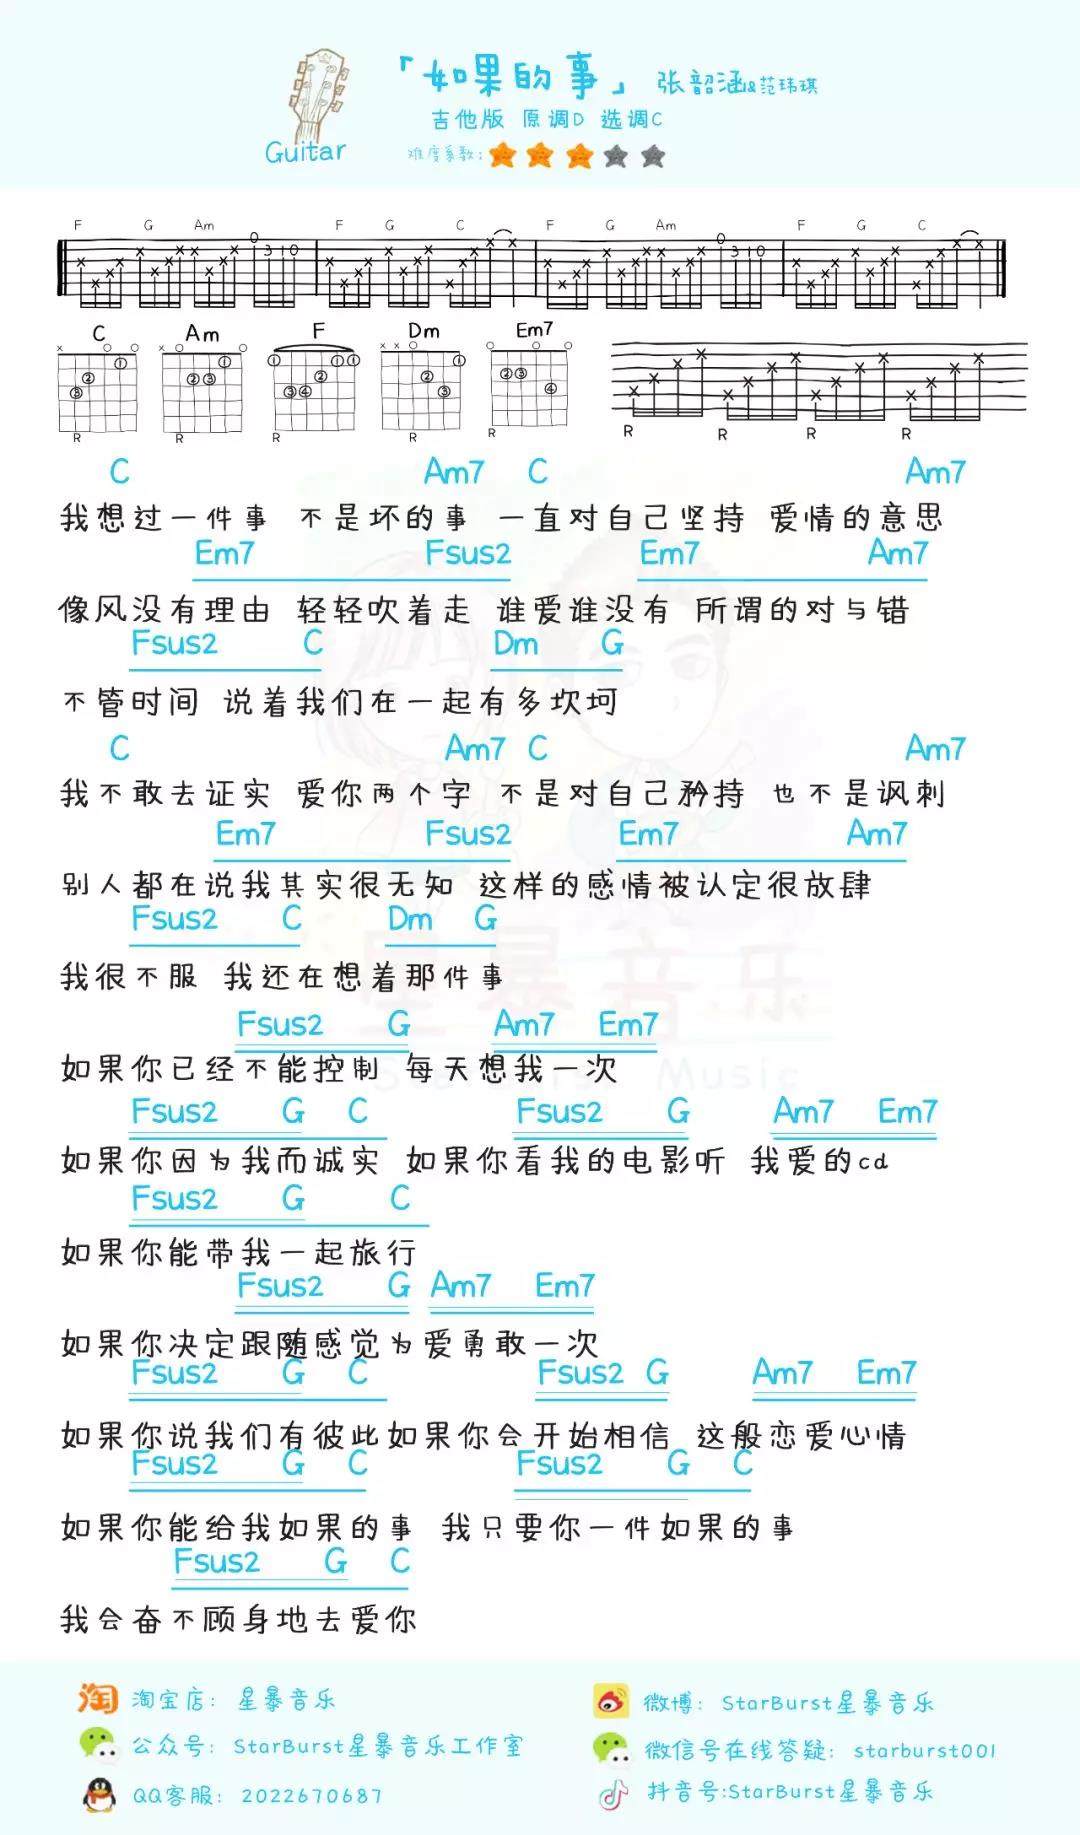 「如果的事」 张韶涵&范玮琪
吉他版 原调D 选调C
Guitar 难度系数:
F G Am F G C F G Am F G C
0 3 1 0 0 3 1 0
C Am F Dm Em7
R R R R R R R R R
C Am7 C Am7
我想过一件事 不是坏的事 一直对自己坚持 爱情的意思
Em7 Fsus2 Em7 Am7
像风没有理由 轻轻吹着走 谁爱谁没有 所谓的对与错
Fsus2 C Dm G
不管时间 说着我们在一起有多坎坷
C Am7 C Am7
我不敢去证实 爱你两个字 不是对自己矜持 也不是讽刺
Em7 Fsus2 Em7 Am7
别人都在说我其实很无知 这样的感情被认定很放肆
Fsus2 C Dm G
我很不服 我还在想着那件事
Fsus2 G Am7 Em7
如果你已经不能控制 每天想我一次
Fsus2 G C Fsus2 G Am7 Em7
如果你因为我而诚实 如果你看我的电影听 我爱的cd
Fsus2 G C
如果你能带我一起旅行
Fsus2 G Am7 Em7
如果你决定跟随感觉为爱勇敢一次
Fsus2 G C Fsus2 G Am7 Em7
如果你说我们有彼此如果你会开始相信 这般恋爱心情
Fsus2 G C Fsus2 G C
如果你能给我如果的事 我只要你一件如果的事
Fsus2 G C
我会奋不顾身地去爱你
星暴音乐
StarBurst Music
淘 淘宝店: 星暴音乐
微博: StarBurst星暴音乐
公众号: StarBurst星暴音乐工作室
微信号在线答疑: starburst001
QQ客服: 2022670687
抖音号:StarBurst星暴音乐